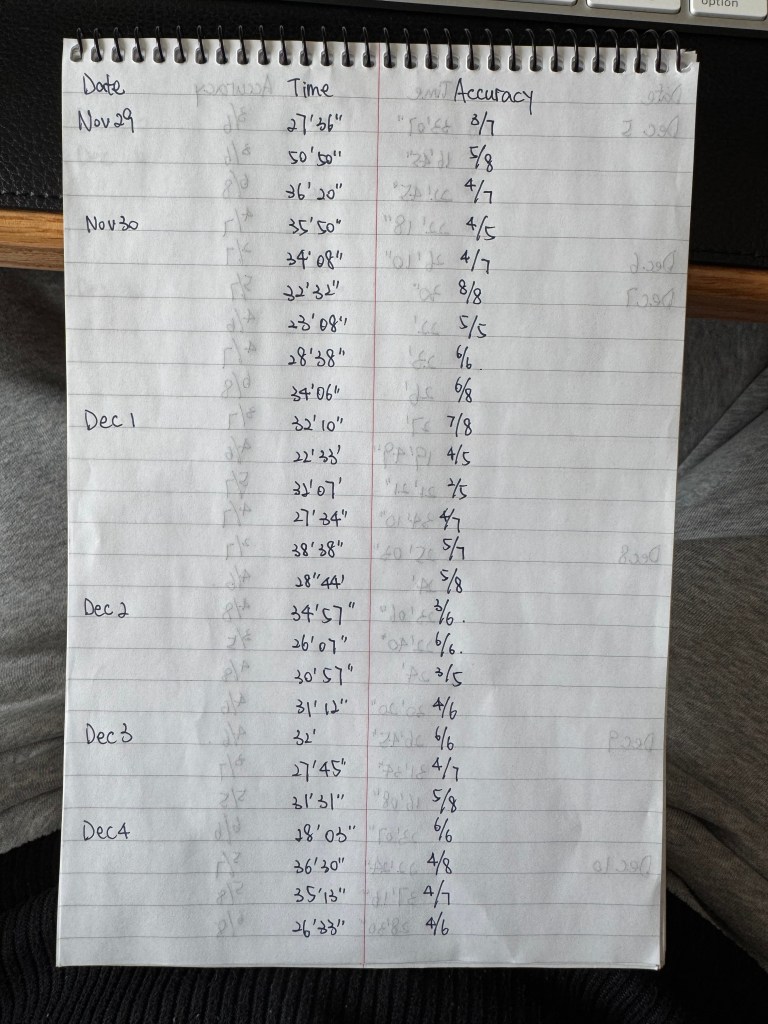 option
Date Time Accuracy
Nov 29 27'36" 3/7
50'50" 5/8
36'20" 4/7
Nov 30 35'50" 4/5
34'08" 4/7
32'32" 8/8
23'08" 5/5
28'38" 6/6.
34'06" 6/8
Dec 1 32'10" 7/8
22'33' 4/5
32'07' 2/5
27'34" 4/7
38'38" 5/7
28"44' 5/8
Dec 2 34'57" 3/6.
26'07" 6/6.
30'57" 3/5
31'12" 4/6
Dec 3 32' 6/6
27'45" 4/7
31'31" 5/8
Dec 4 28'03" 6/6
36'30" 4/8
35'13" 4/7
26'33" 4/6